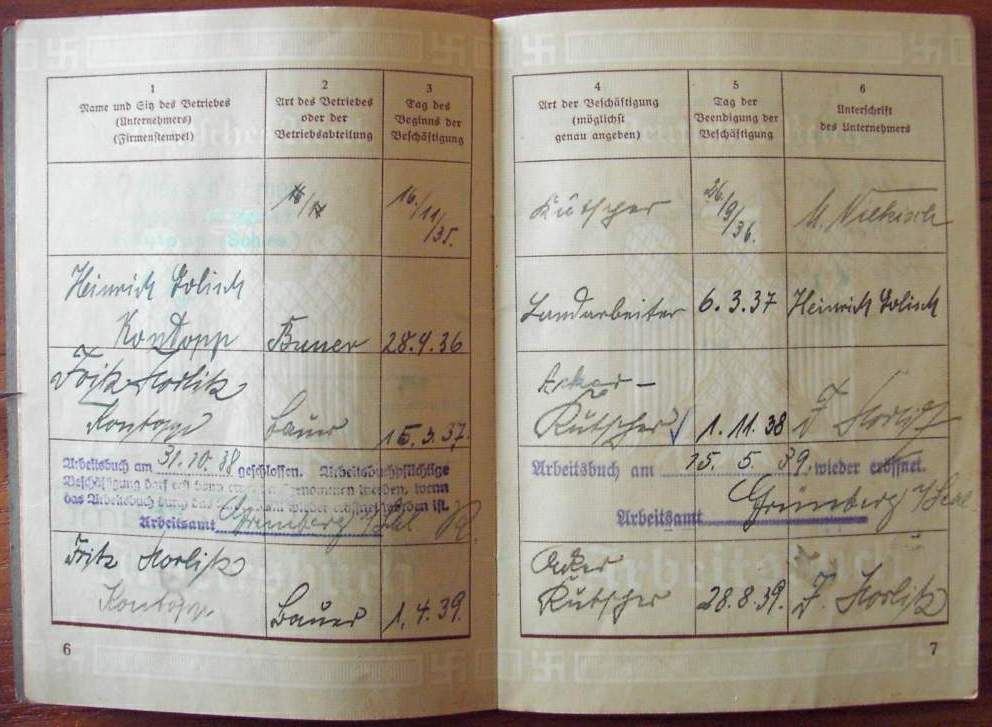 1
Name und Sitz des Betriebes
(Unternehmers)
(Firmenstempel)
2
Art des Betriebes
oder der
Betriebsabteilung
3
Tag des
Beginns der
Beschäftigung
16/11/35.
Heinrich Golisch
Kontopp
Bauer
28.9.36
Fritz Horlitz
Kontopp
Bauer
15.3.37.
Arbeitsbuch am 31.10.38 geschlossen. Arbeitsbuchpflichtige
Beschäftigung darf erst dann wieder aufgenommen werden, wenn
das Arbeitsbuch durch das Arbeitsamt wieder eröffnet worden ist.
Arbeitsamt Grünberg
Fritz Horlitz
Kontopp
Bauer
1.4.39.
6
4
Art der Beschäftigung
(möglichst
genau angeben)
5
Tag der
Beendigung der
Beschäftigung
6
Unterschrift
des Unternehmers
Kutscher
26/9/36.
Landarbeiter
6.3.37
Heinrich Golisch
Acker-
Kutscher
1.11.38
F. Horlitz
Arbeitsbuch am 15. 5. 39. wieder eröffnet.
Arbeitsamt Grünberg
Acker
Kutscher
28.8.39.
F. Horlitz
7